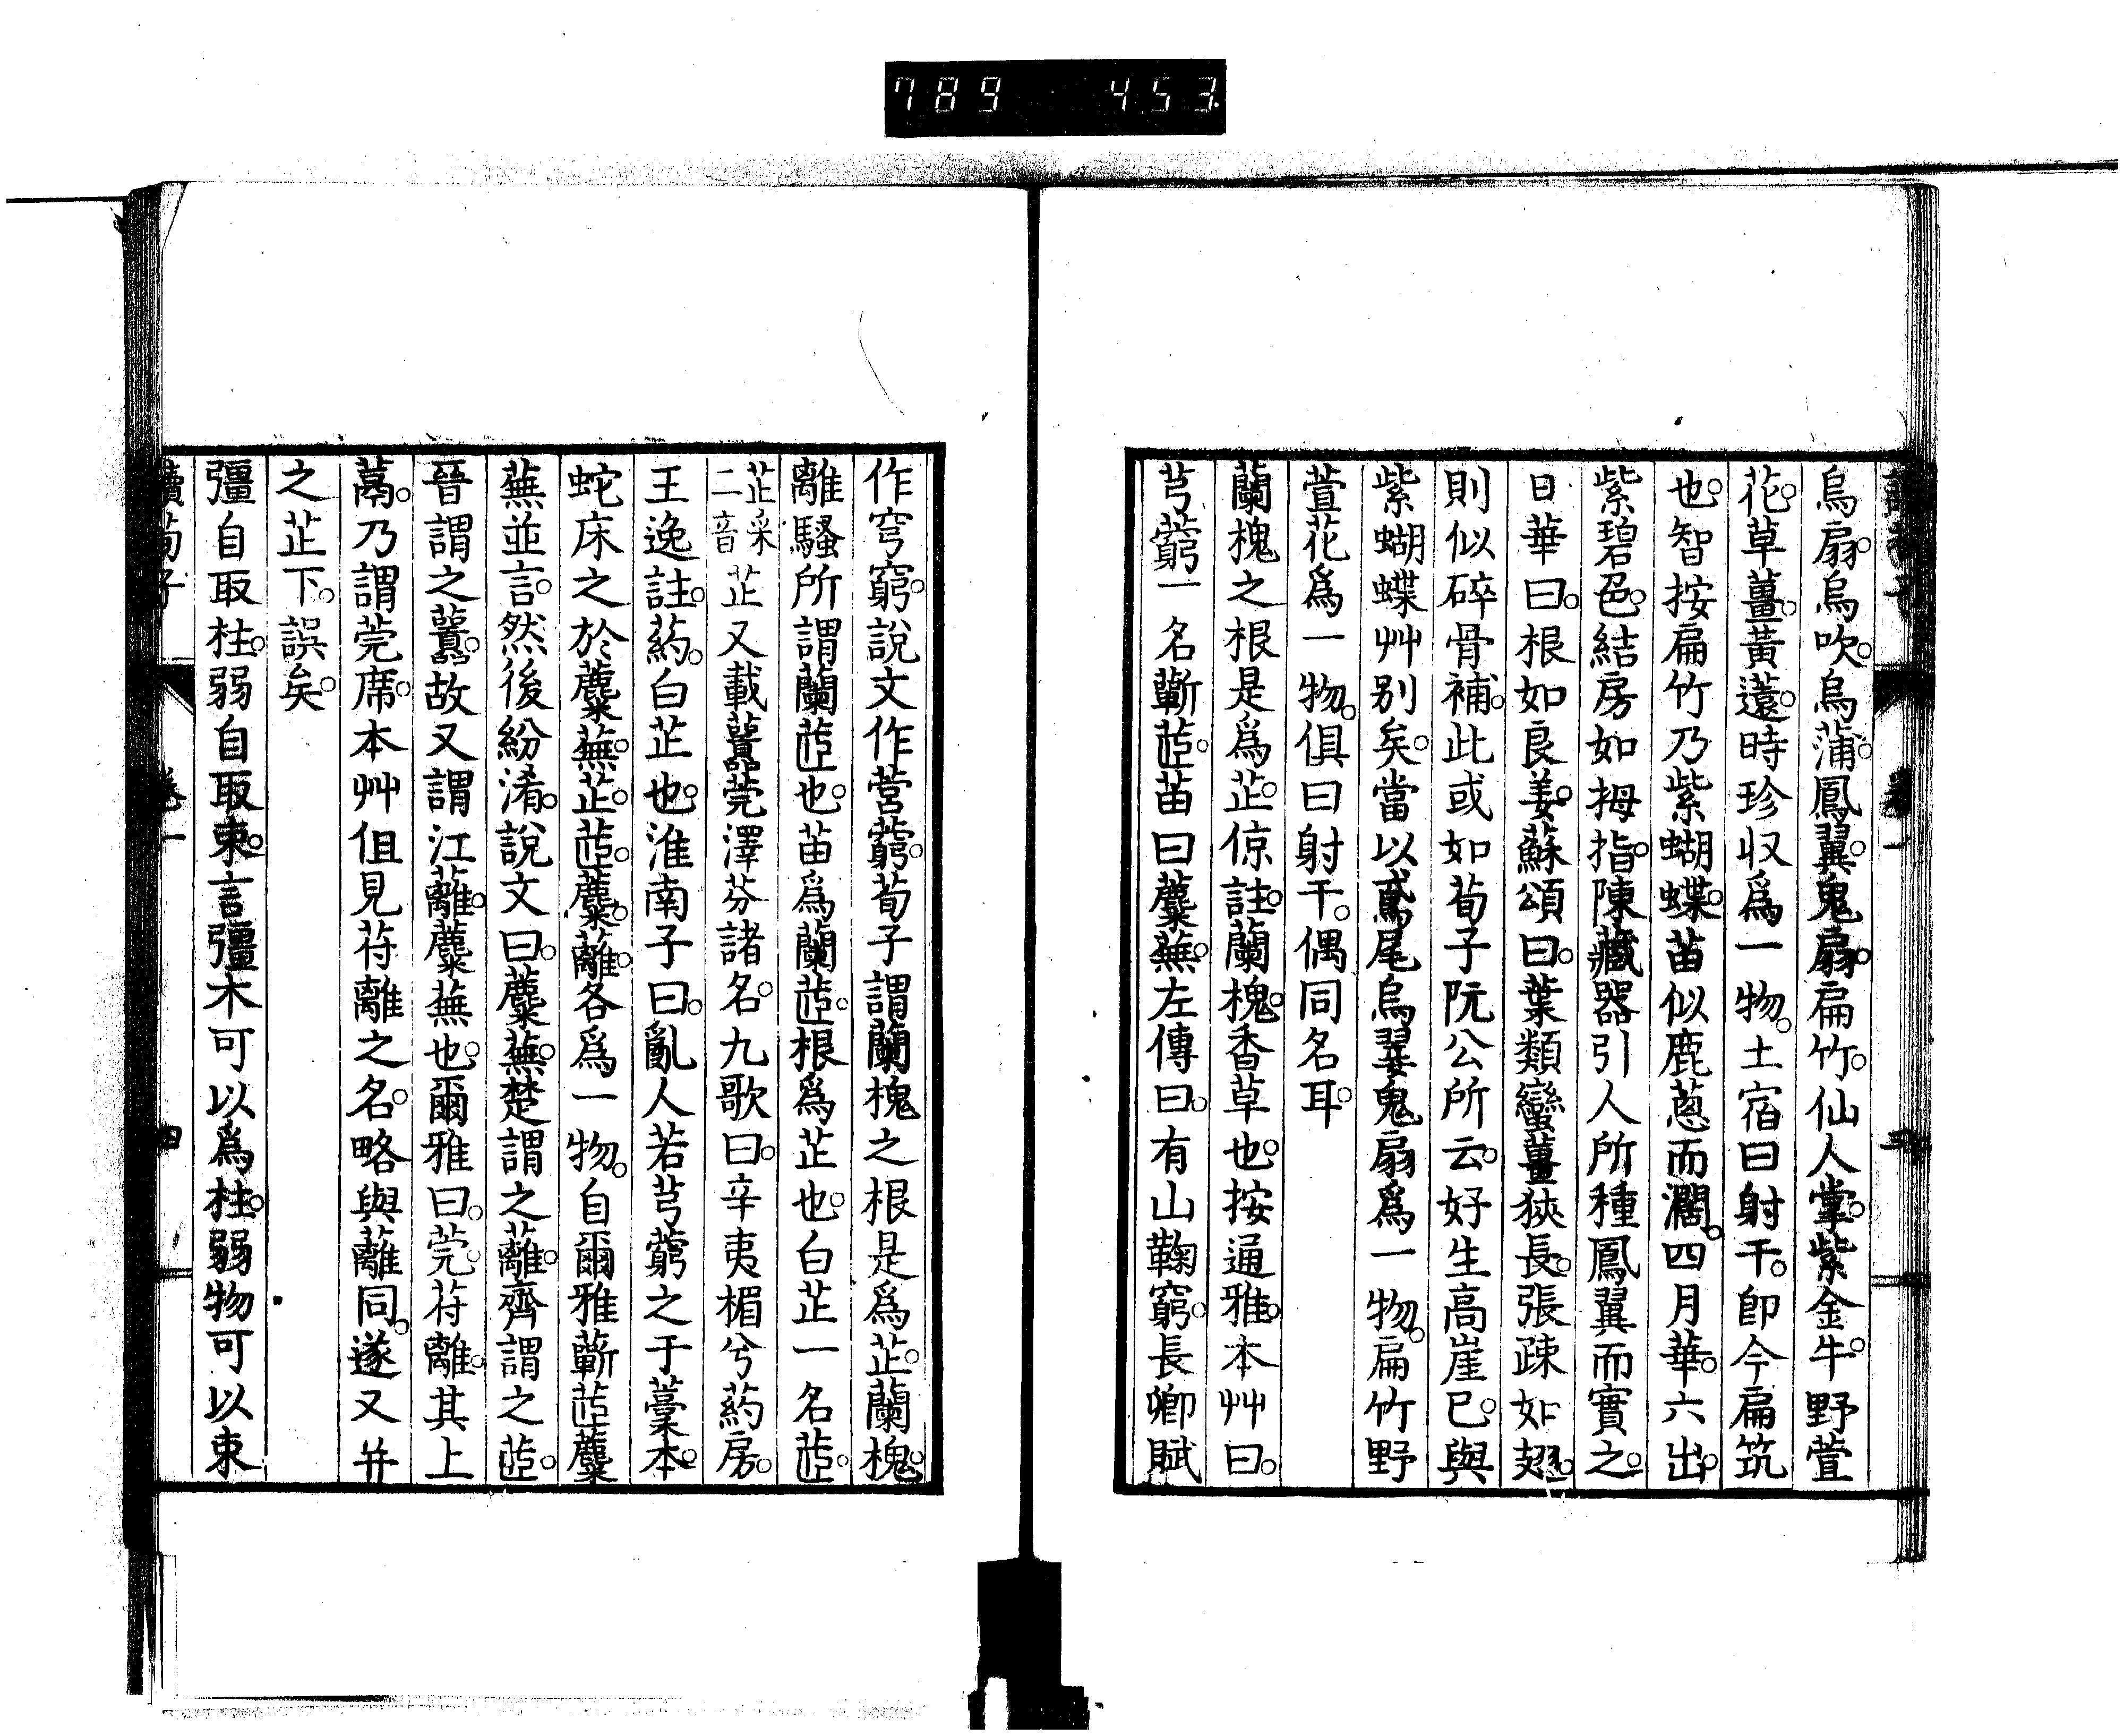 789 453
烏扇。烏吹。烏蒲。鳳翼。鬼扇。扁竹。仙人掌。紫金牛。野萱
花。草薑。黃薳。時珍収爲一物。土宿曰射干。卽今扁筑
也。智按扁竹乃紫蝴蝶。苗似鹿蔥而濶。四月華。六出。
紫碧色。結房如拇指。陳藏器引人所種鳳翼而實之。
日華曰。根如良姜。蘇頌曰。葉類蠻薑狹長。張疎如翅。
則似碎骨補。此或如荀子阮公所云。好生高崖巳。與
紫蝴蝶艸別矣。當以鳶尾烏翣鬼扇爲一物。扁竹野
萱花爲一物。俱曰射干。偶同名耳。
蘭槐之根是爲芷。倞註。蘭槐。香草也。按通雅。本艸曰。
芎藭一名蘄茝。苗曰蘪蕪。左傳曰。有山鞠窮。長卿賦
作穹窮。說文作营藭。荀子謂蘭槐之根是爲芷。蘭槐。
離騷所謂蘭茝也。苗爲蘭茝。根爲芷也。白芷一名茝。
芷采二音芷又載蘬莞澤芬諸名。九歌曰。辛夷楣兮葯房。
王逸註。葯。白芷也。淮南子曰。亂人若芎藭之于藁本。
蛇床之於蘪蕪。芷。茝。蘪。蘺。各爲一物。自爾雅蘄茝蘪
蕪並言。然後紛淆。說文曰。蘪蕪。楚謂之蘺。齊謂之茝。
晉謂之蘬。故又謂江蘺。蘪蕪也。爾雅曰。莞。苻離。其上
蒚。乃謂莞席。本艸但見苻離之名。略與蘺同。遂又并
之芷下。誤矣。
彊自取柱。弱自取束。言彊木可以爲柱。弱物可以束
讀荀子 卷一 四